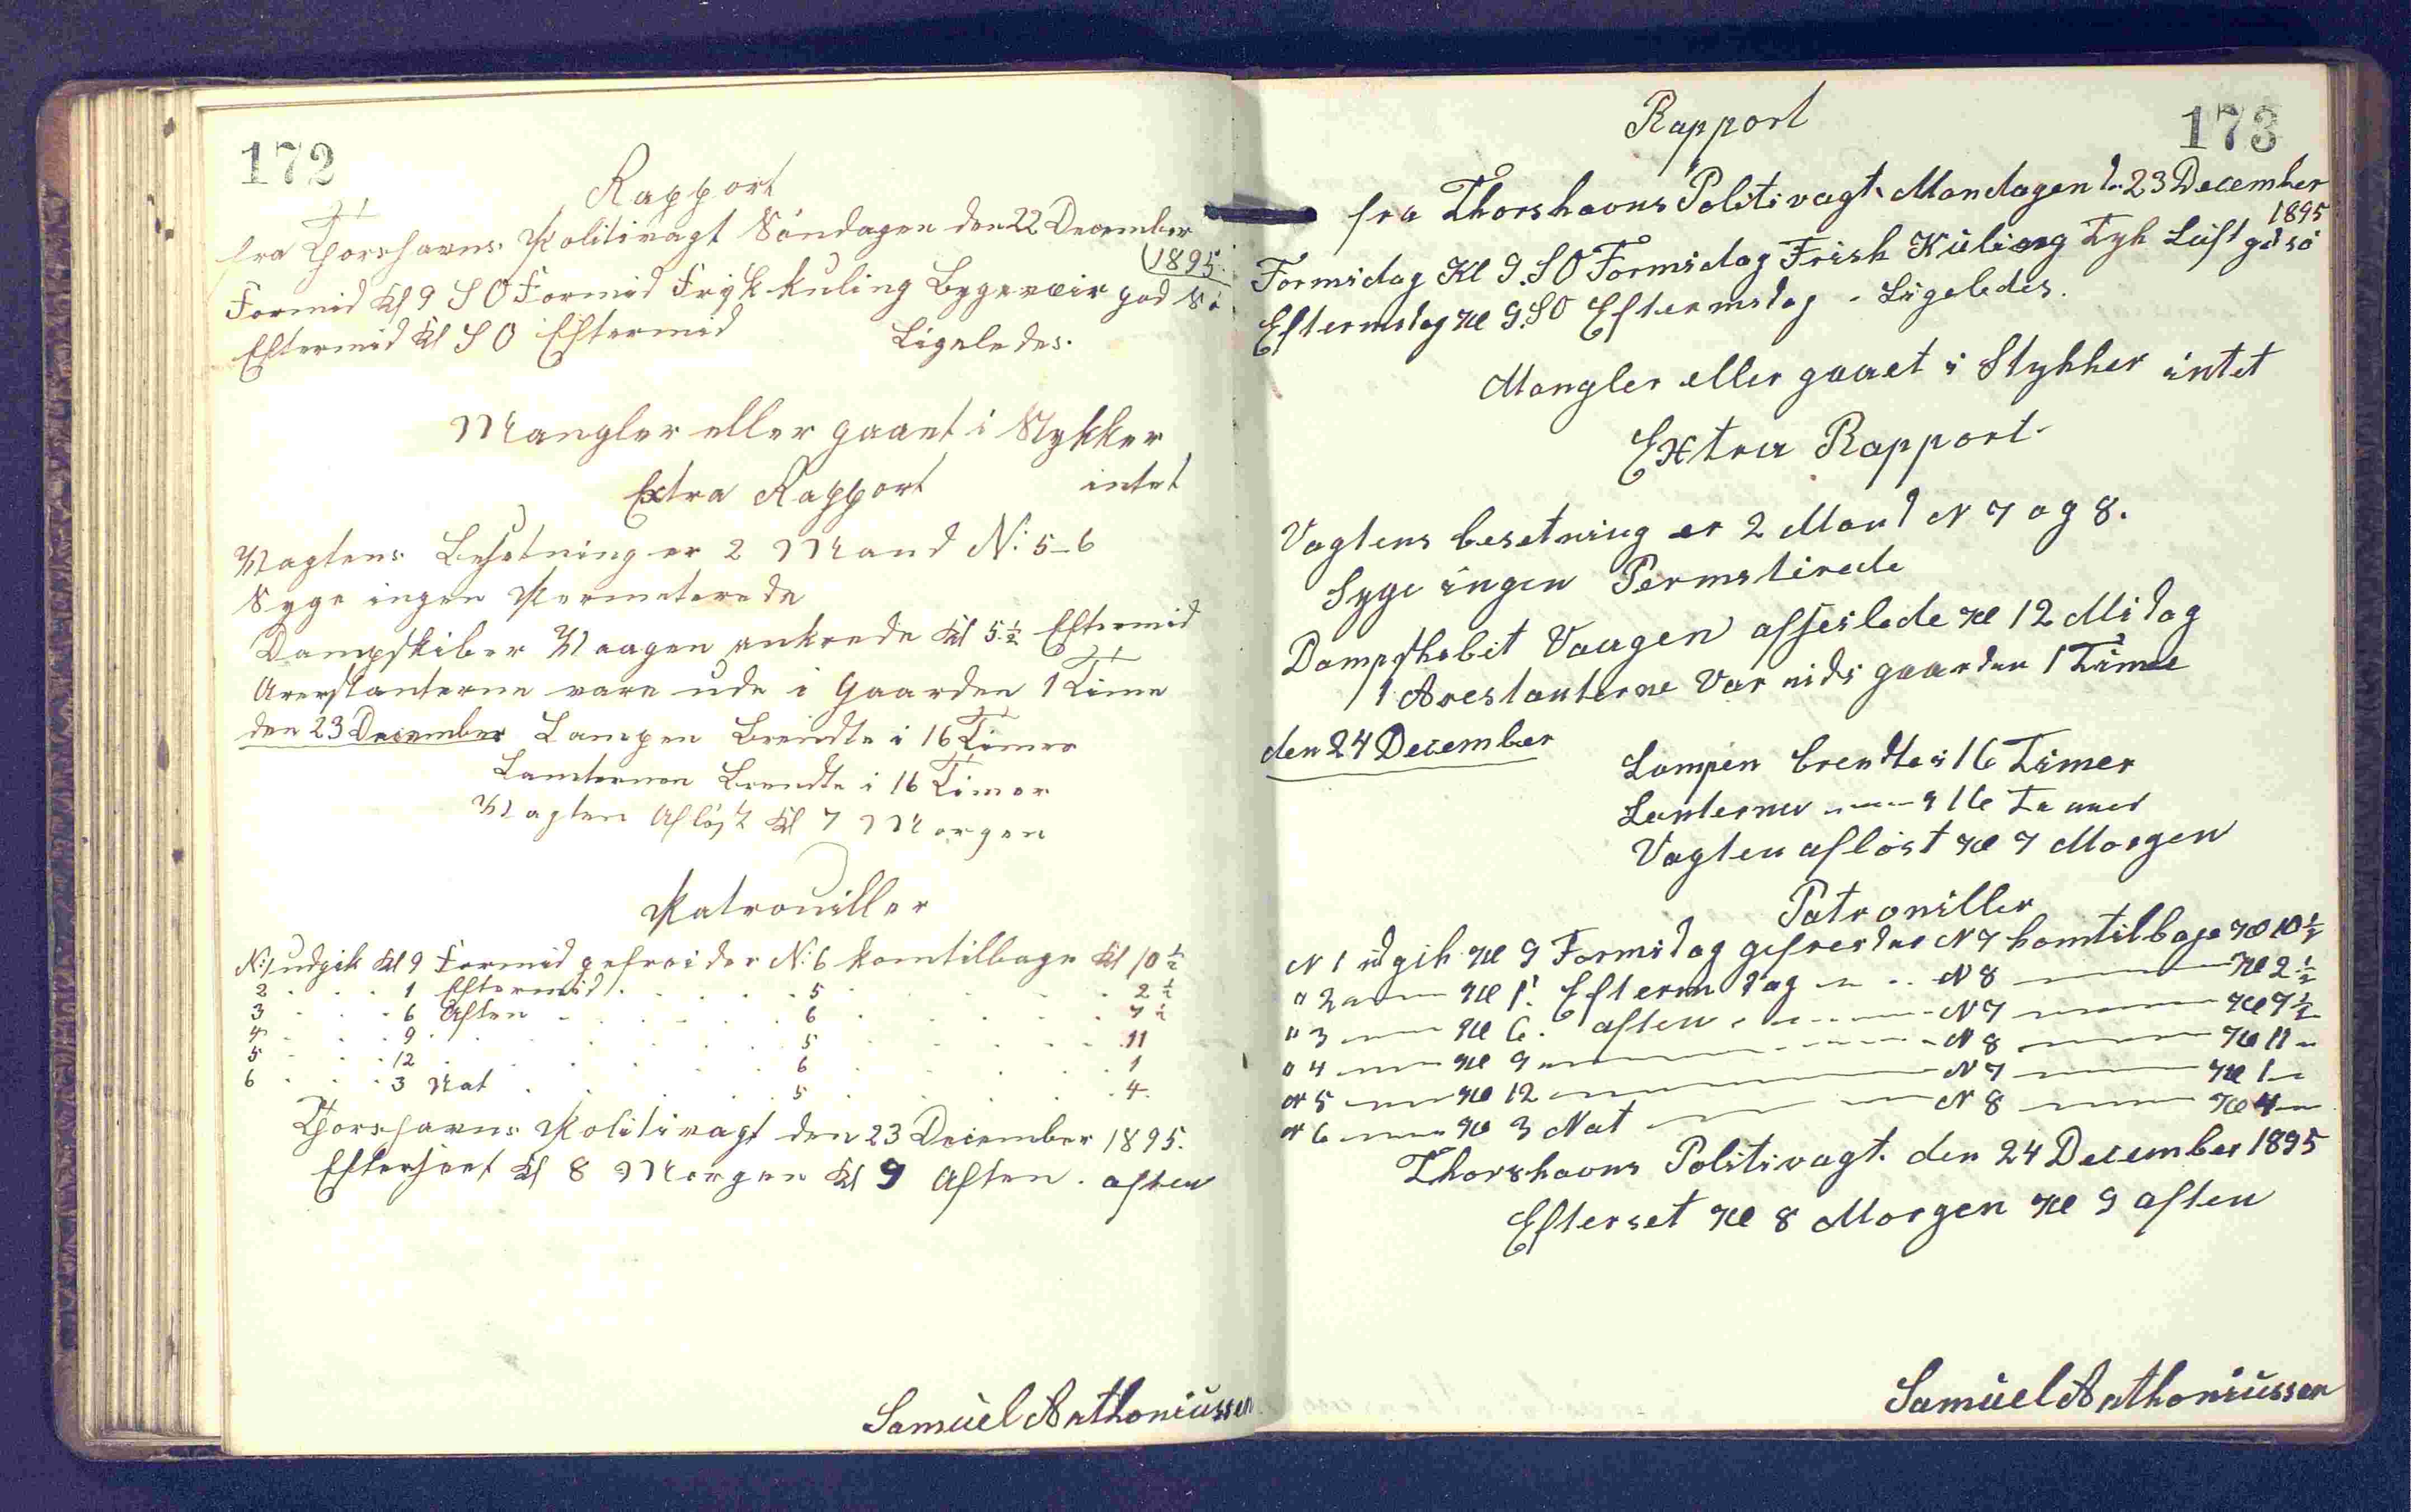 172
Rapport
fra Thorshavns Politivagt Söndagen den 22 December
1895.
Formid Kl 9 SO Formid Frisk kuling Bygeveir god Sö
Eftermid Kl SO Eftermid Ligeledes.
Mangler eller gaaet i Stykker
intet
Extra Rapport
Vagtens Besetning er 2 Mand N: 5-6
Syge ingen Permeterede
Dampskiber Vaagen ankrede Kl 5½ Eftermid
Arerstanterne vare ude i Gaarden 1 Time
den 23 December Lampen Brendte i 16 Timer
Lanternen Brendte i 16 Timer
Vagten Aflöst Kl 7 Morgen
Patrouiller
N: 1 udgik Kl 9 Formid gefreider N: 6 kom tilbage Kl 10½
2 . . . 1 Eftermid . . . . 5 . . . . 2½
3 . . . 6 Aften . . . . 6 . . . . 7½
4 . . . 9 . . . . 5 . . . . 11
5 . . . 12 . . . . 6 . . . . 1
6 . . . 3 Nat . . . . 5 . . . . 4
Thorshavns Politivagt den 23 December 1895.
Efterseet Kl 8 Morgen Kl 9 Aften . aften
Samuel Anthoniussen
173
Rapport
fra Thorshavns Politivagt Mandagen d. 23 December
1895
Formidag Kl 9. SO Formidag Frisk Kuling Tyk Luft gd sö
Eftermidag Kl 9. SO Eftermidag - Ligeledes.
Mangler eller gaaet i Stykker intet
Extra Rapport
Vagtens besetning er 2 Mand N 7 og 8.
Syge ingen Permitirede
Dampskibit Vaagen afseilede Kl 12 Midag
1 Arestanterne Var uidi gaarden 1 Time
den 24 December
Lampen brendte i 16 Timer
Lanternen -- - i 16 Timer
Vagten aflöst Kl 7 Morgen
Patroniller
N 1 udgik Kl 9 Formidag gefreider N 7 kom tilbage Kl 10½
" 2 — Kl 1. Eftermidag — N 8 — Kl 2½
" 3 — Kl 6. aften — N 7 — Kl 7½
" 4 — Kl 9 — N 8 — Kl 11
N 5 — Kl 12 — N 7 — Kl 1
N 6 — Kl 3 Nat — N 8 — Kl 4
Thorshavns Politivagt. den 24 December 1895
Efterset Kl 8 Morgen Kl 9 aften
Samuel Anthoniussen